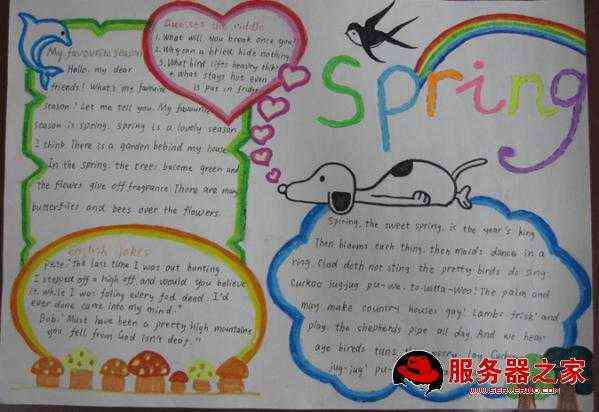 My favourite season
Hello, my dear
friends! What's my favourite
season? Let me tell you. My favourite
season is spring. Spring is a lovely season
I think. There is a garden behind my house.
In the spring, the trees become green and
the flowers give off fragrance. There are many
butterflies and bees over the flowers.
Guesses the riddle
1. What will you break once you
2. Why can a bried hide nothing
3. What bird lifts heavry things
4. what stays hot even
is put in fridge
Spring
English jokes
Pete: "The last time I was out hunting,
I stepped off a high off and would you believe
it, while I was faling every fod dead I'd
ever done came into my mind."
Bob: "Must have been a pretty high mountains
you fell from God isn't deep."
Spring, the sweet spring, is the year's king
Then blooms each thing, then maids dance in a
ring. Clod doth not sting the pretty birds do sing.
Cuckoo jug-jug pu-we, to-witta-woo! The palm and
may make country houses gay! Lambs frisk and
play, the shepherds pipe all day, And we hear
age birds tune merry lay. Cuckoo
jug-jug! pu-
服务器之家
WWW.SERVERWO.COM